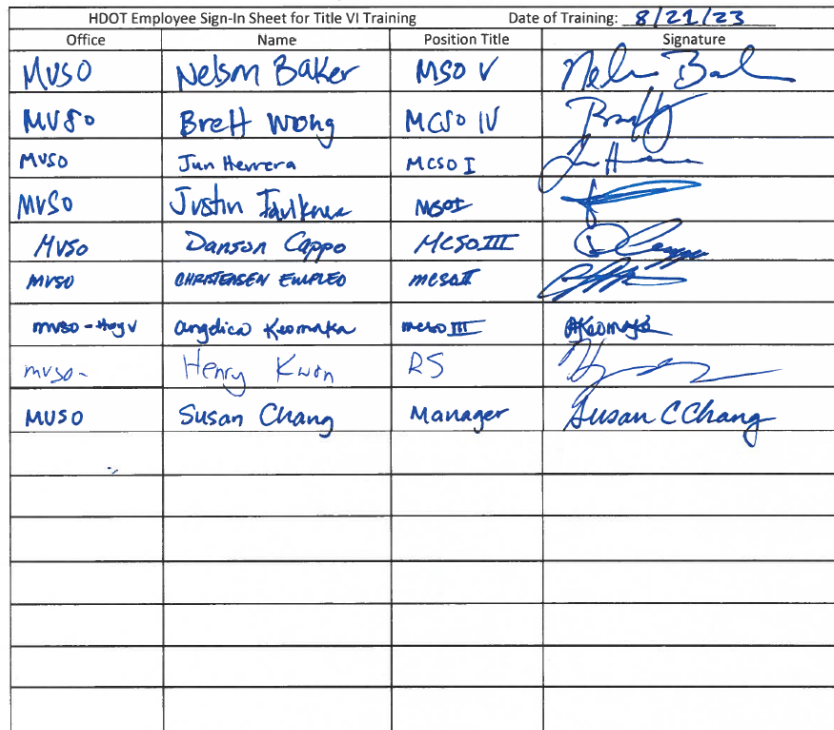 HDOT Employee Sign-In Sheet for Title VI Training Date of Training: 8/21/23
Office Name Position Title Signature
MVSO Nelson Baker MSO V
MVSO Brett Wong MCSO IV
MVSO Jun Herrera MCSO I
MVSO Justin Faulkner MSOI
MVSO Danson Cappo MCSO III
MVSO CHRISTENSEN EMPLEO MCSO II
MVSO - Angelica Keomaka MCSO III AKeomaka
MVSO- Henry Kwon RS
MVSO Susan Chang Manager Susan C Chang